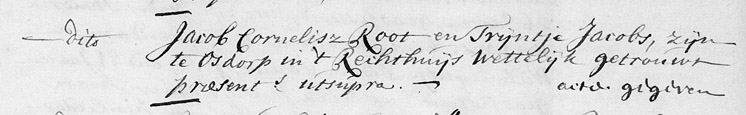 dito Jacob Cornelisz Root en Trijntje Jacobs, zijn
te Osdorp in 't Rechthuijs Wettelijk getrouwt
præsent ut supra. acte gegeven